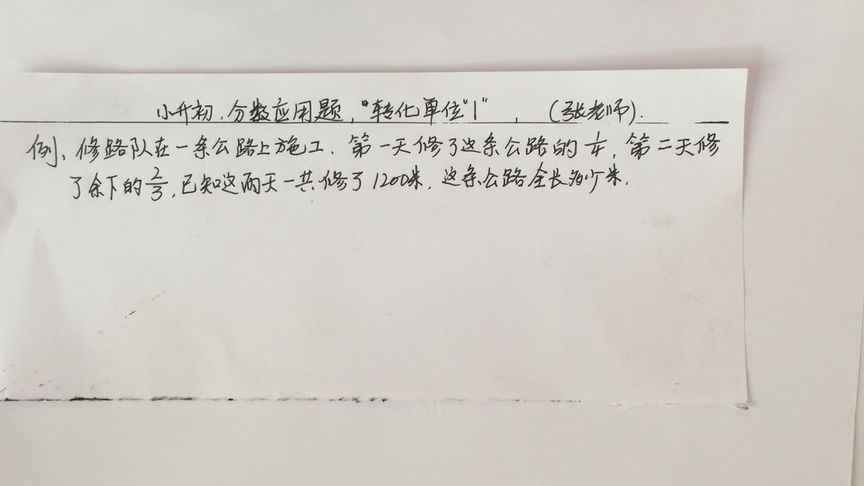 小升初.分数应用题,"转化单位"1",(张老师).
例,修路队在一条公路上施工.第一天修了这条公路的1/4,第二天修
了余下的2/3,已知这两天一共修了1200米.这条公路全长多少米.